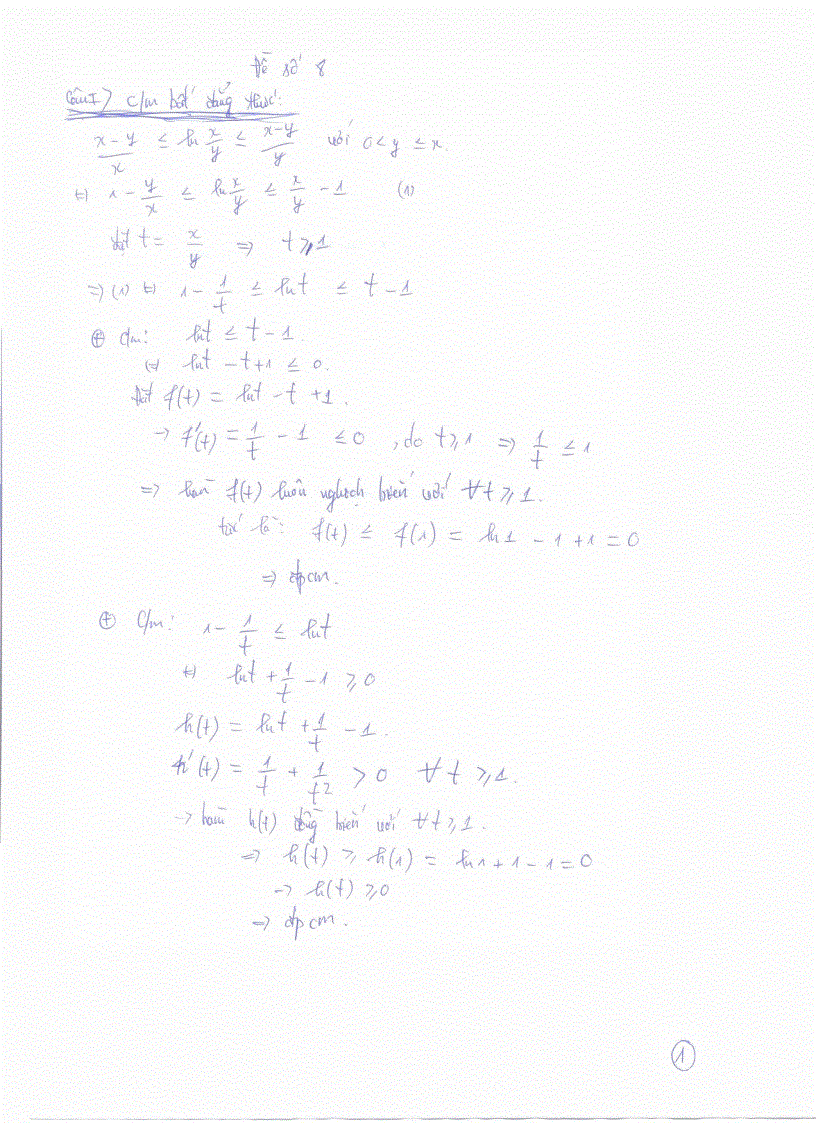 Đề số 8
Câu I) C/m bất đẳng thức:
(x-y)/x ≤ ln x/y ≤ (x-y)/y với 0 < y ≤ x.
⇔ 1 - y/x ≤ ln x/y ≤ x/y - 1 (1)
đặt t = x/y ⇒ t ≥ 1
⇒ (1) ⇔ 1 - 1/t ≤ lnt ≤ t - 1
⊕ C/m: lnt ≤ t - 1.
⇔ lnt - t + 1 ≤ 0.
Đặt f(t) = lnt - t + 1.
→ f'(t) = 1/t - 1 ≤ 0 , do t ≥ 1 ⇒ 1/t ≤ 1
⇒ hàm f(t) luôn nghịch biến với ∀t ≥ 1.
tức là: f(t) ≤ f(1) = ln1 - 1 + 1 = 0
⇒ đpcm.
⊕ C/m: 1 - 1/t ≤ lnt
⇔ lnt + 1/t - 1 ≥ 0
h(t) = lnt + 1/t - 1.
h'(t) = 1/t + 1/t² > 0 ∀ t ≥ 1.
→ hàm h(t) đồng biến với ∀t ≥ 1.
⇒ h(t) ≥ h(1) = ln1 + 1 - 1 = 0
→ h(t) ≥ 0
⇒ đpcm.
1